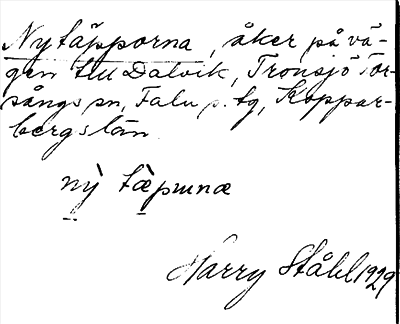 Nytäpporna, åker på vä-
gen till Dalvik, Tronsjö Tor-
sångs sn, Falu s. tg, Koppar-
bergs län
nỳ tæ̀puɳæ
Harry Ståhl 1929